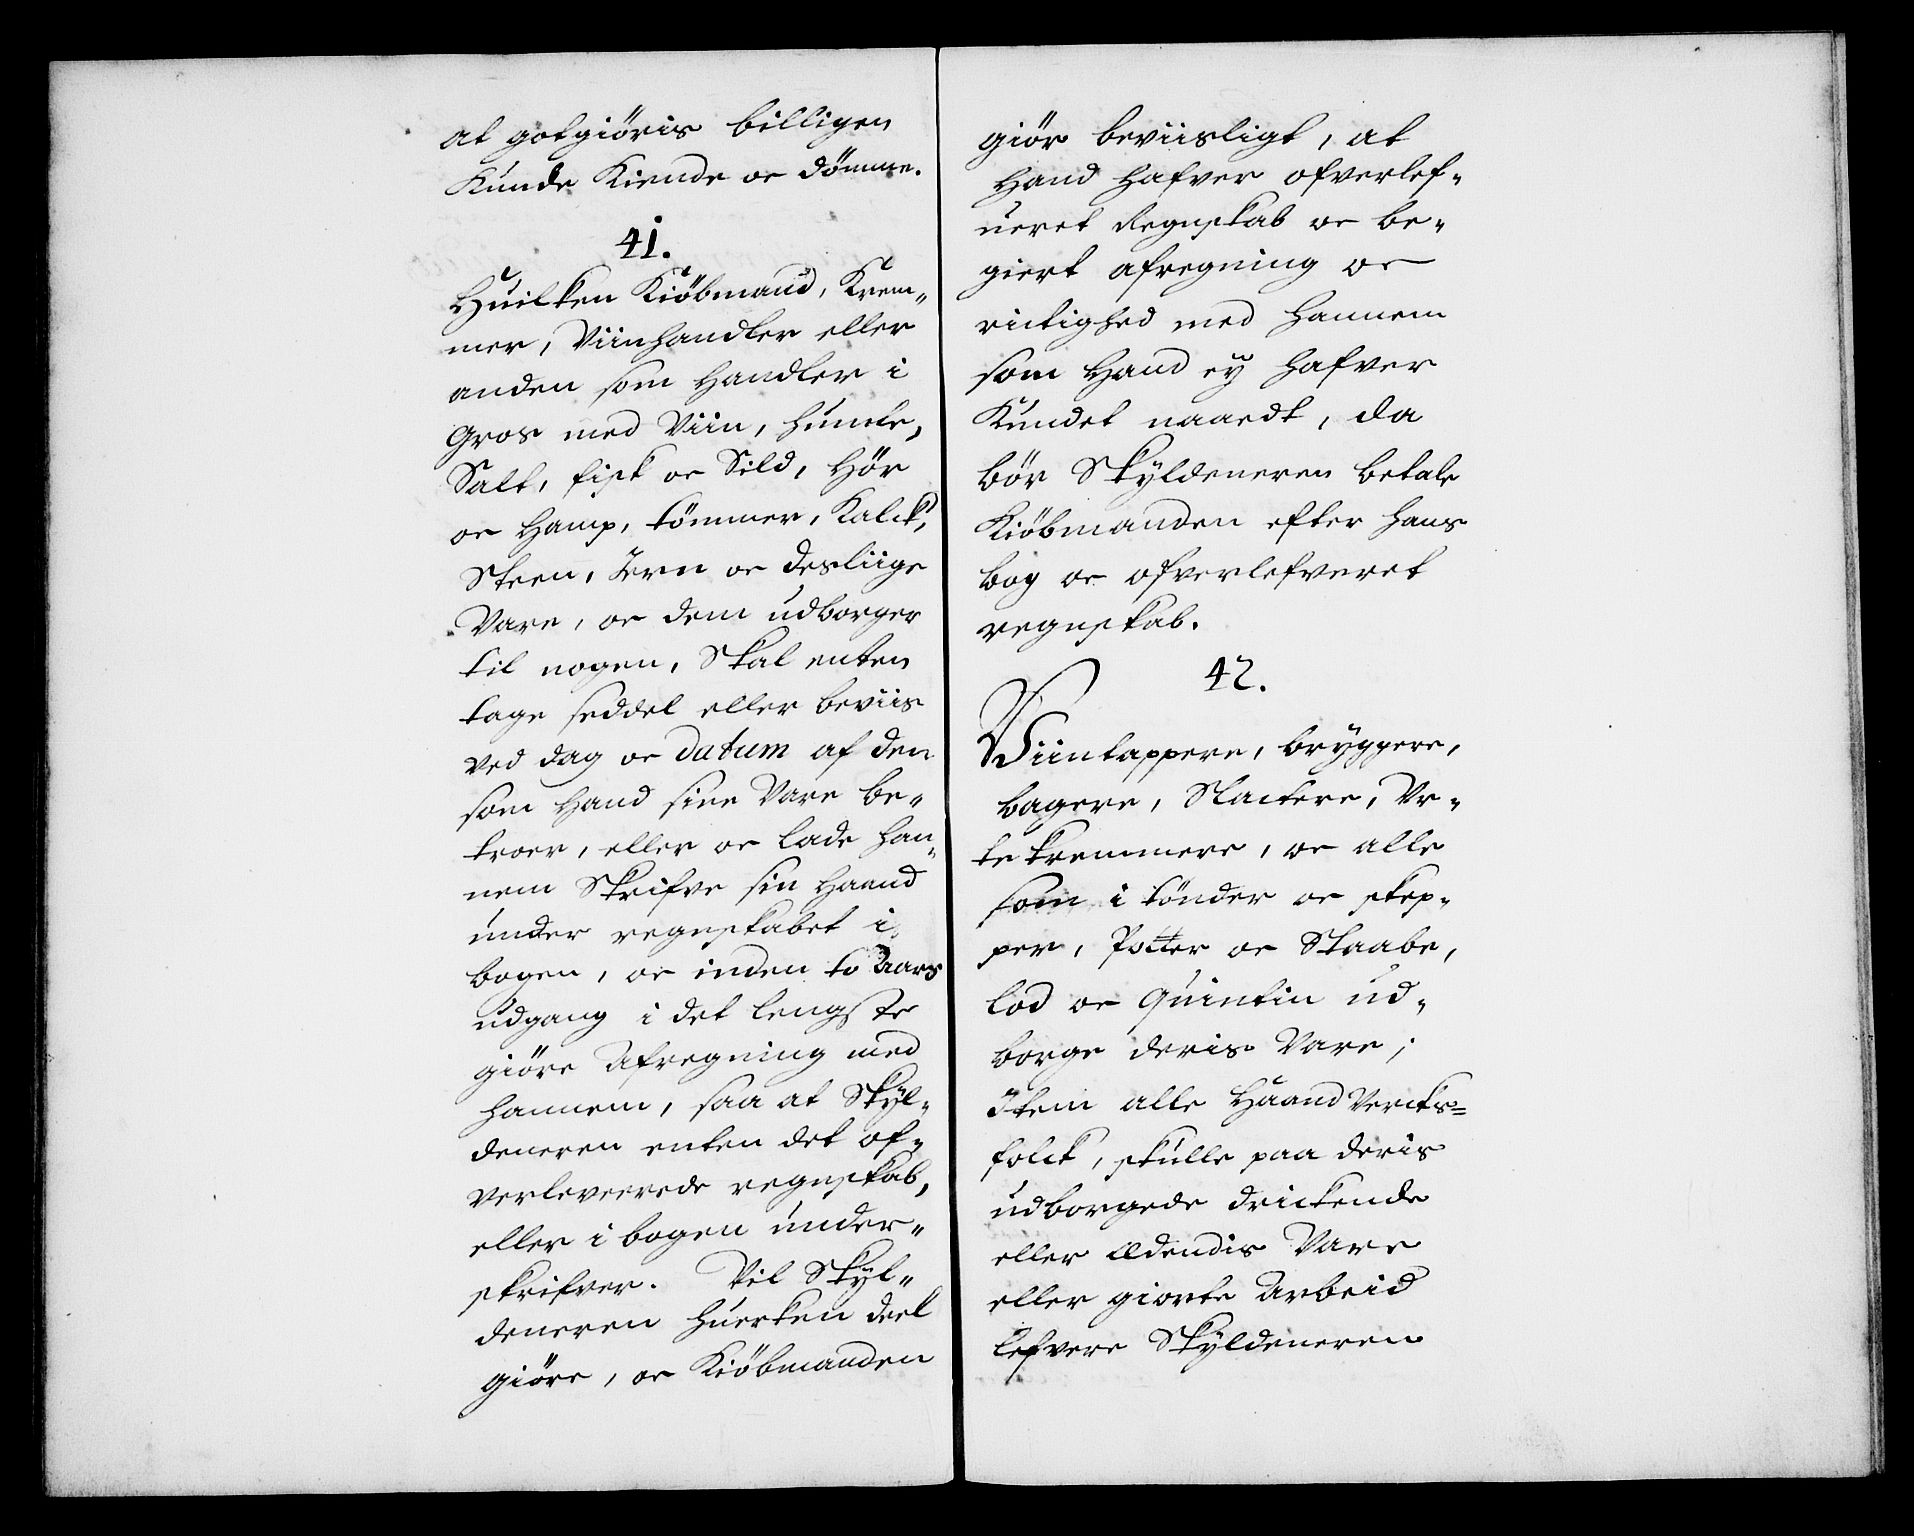 at gotgiöris billigen
Kunde Kiende oc dömme.
41.
Huilken Kiöbmand, Krem„
mer, Viinhandler eller
anden som Handler i
Gros med Viin, humle,
Salt, fisk oc Sild, Hör
oc Hamp, tömmer, Kalck,
Steen, Jern oc desliige
Vare, oc dem udborger
til nogen, Skal enten
tage seddel eller beviis
ved dag oc datum af den
som Hand sine Vare be„
troer, eller oc lade han„
nem Skrifve sin Haand
under regnskabet i
bogen, oc inden to Aars
udgang i det lengste
giöre Afregning med
hannem, saa at Skyl„
deneren enten det of„
verleverede regnskab,
eller i bogen under„
skrifver. Vil Skyl„
deneren huerken deel
giöre, oc Kiöbmanden
giör beviisligt, at
Hand hafver ofverlef„
ueret Regnskab oc be„
giert afregning oc
rictighed med hannem
som Hand ey hafver
Kundet naaedt, da
bör Skyldeneren betale
Kiöbmanden efter hans
bog oc ofverlefveret
regnskab.
42.
Viintappere, bryggere,
bagere, Slactere, Vr„
tekremmere, oc alle
som i tönder oc skep„
per, Potter oc Skaale,
lod oc Quintin ud„
borge deris Vare;
Item alle Haand Vercks=
folck, skulle paa deris
udborgede drickende
eller ædendis Vare
eller giorte Arbeid
lefvere Skyldeneren